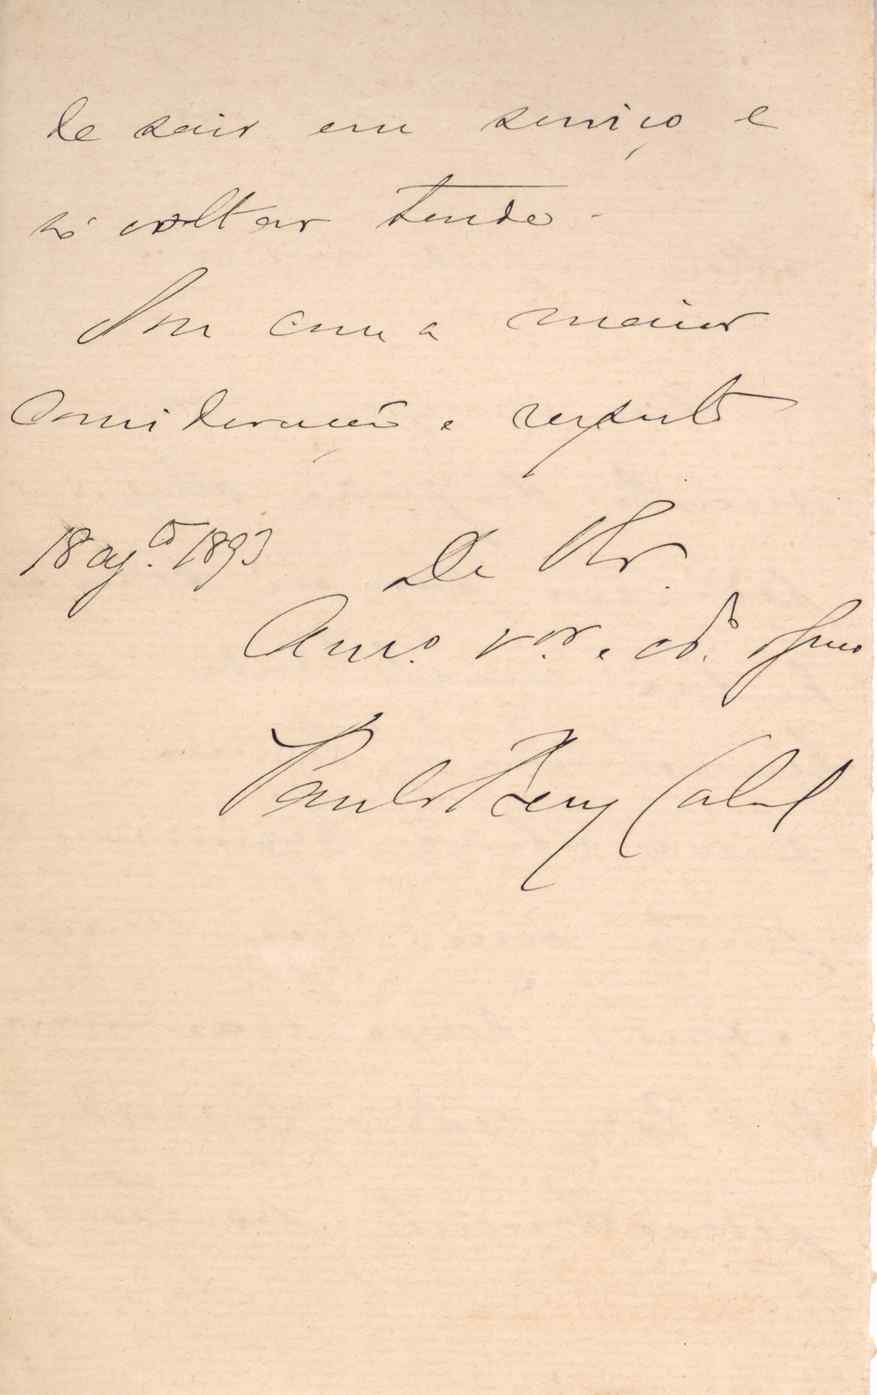 de sair em serviço e
só voltar tarde.
Sou com a maior
consideração e respeito
18 ag.to 1893 De V. Ex.
Am.o e cd.o
Paulo Cabral